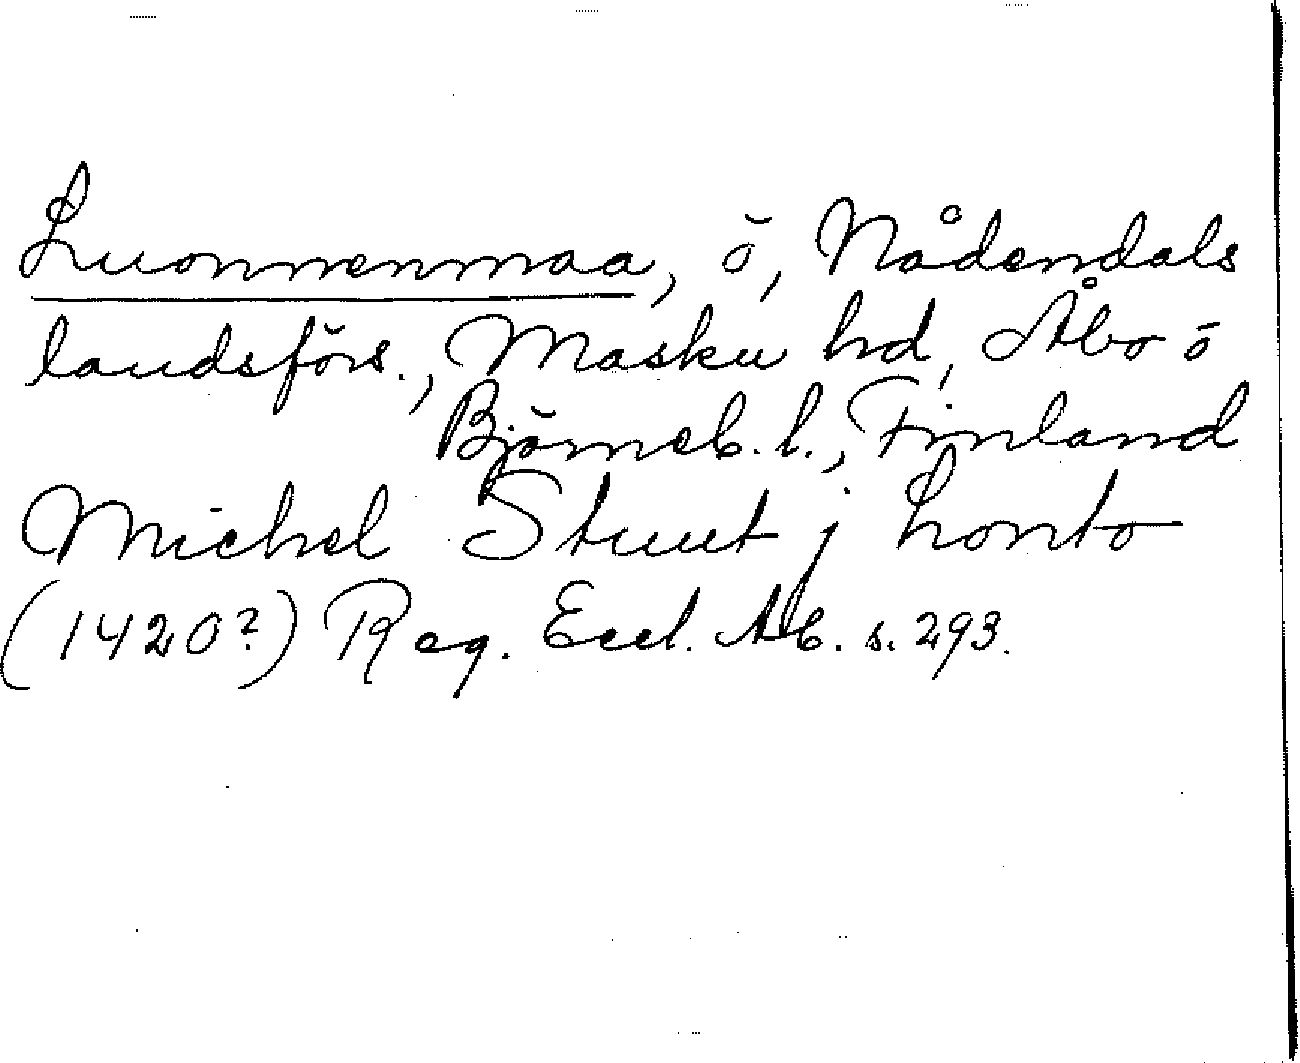 Luonnenmaa, ö, Nådendals
landsförs., Masku hd, Åbo o
Björneb. l., Finland
Michel Stuut j Lonto
(1420?) Reg. Eccl. Ab. s. 293.